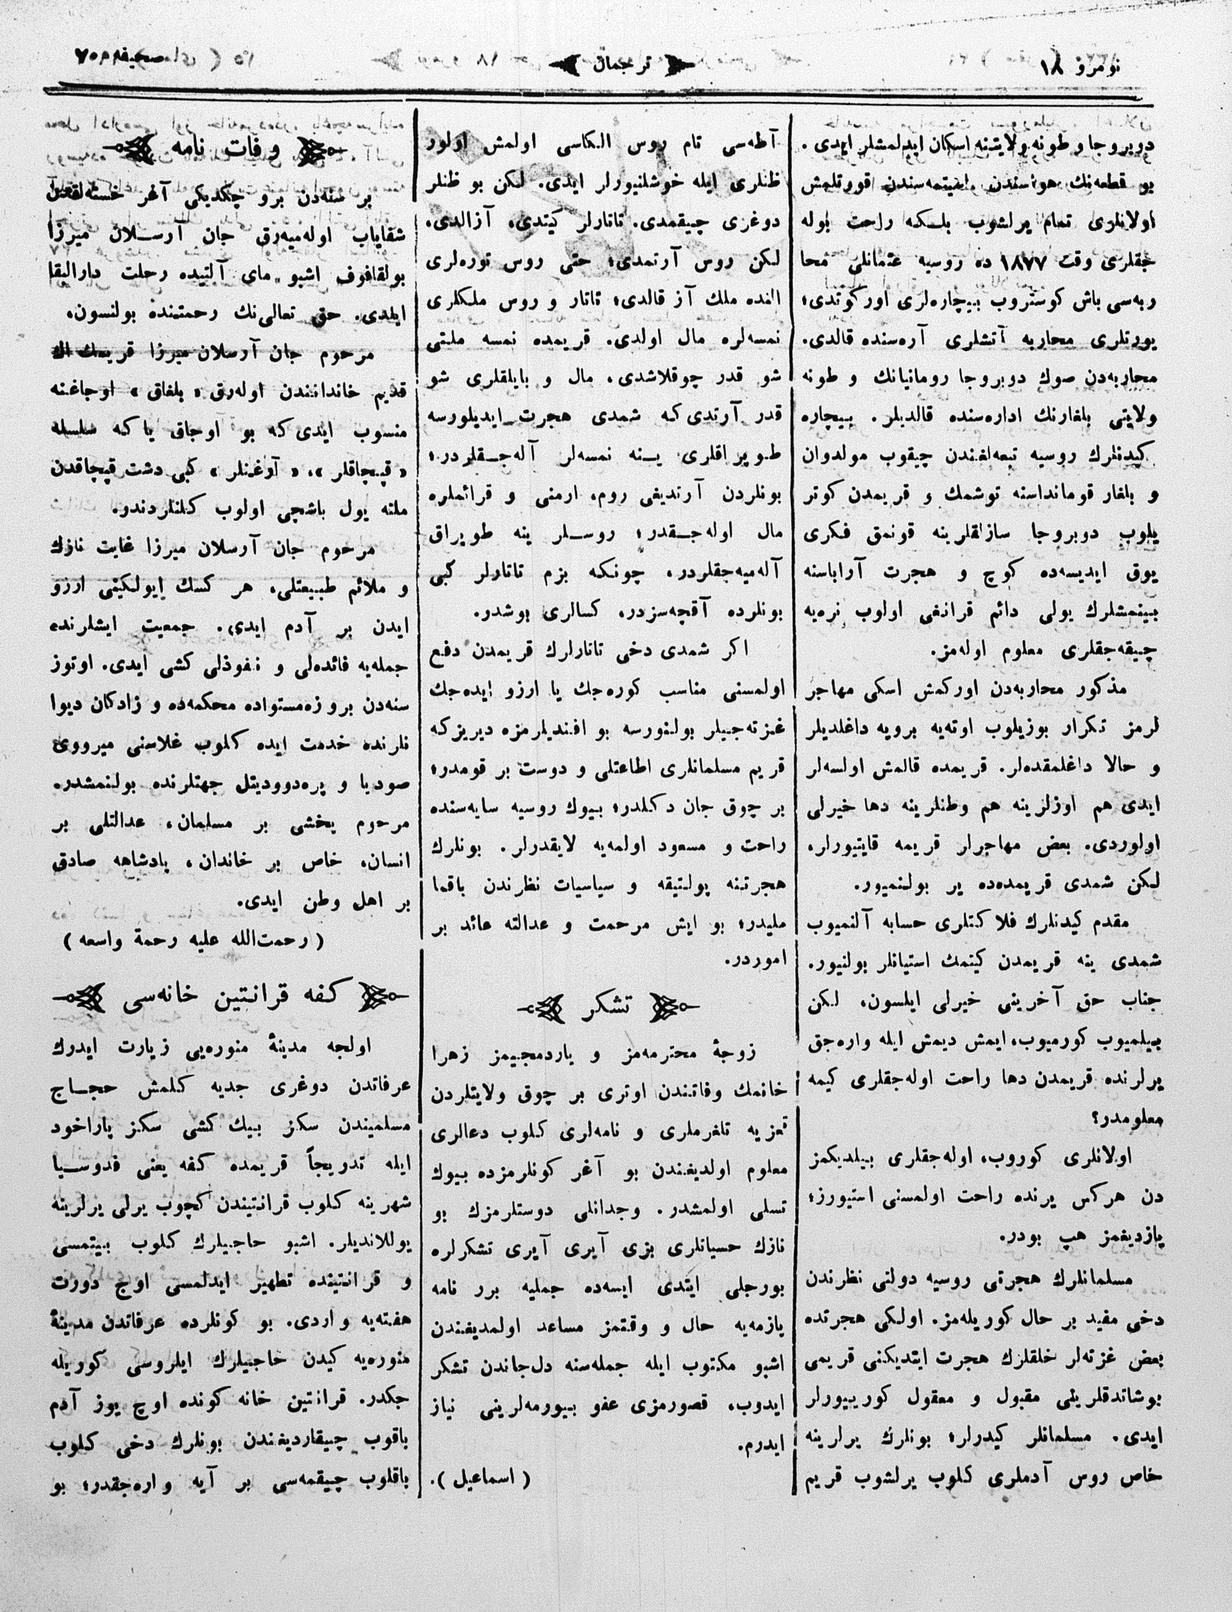 نومرو ۱۸
ترجمان
صحیفه
دوبروجا و طونه ولایتنه اسکان ایدلمشلر ایدی.
بو قطعه‌نك هواسندن، ایشتمه‌سندن قورتلمش
اولانلری تمام یرلشوب بلکه راحت بوله
جقلری وقت ۱۸۷۷ ده روسیه عثمانلی محا
ربه‌سی باش کوستروب بیچاره‌لری اورکوتدی؛
یورتلری محاربه آتشلری آره‌سنده قالدی.
محاربه‌دن صوك دوبروجا رومانیانك و طونه
ولایتی بلغارنك اداره‌سنده قالدیلر. بیچاره
کیدنلرك روسیه تبعه‌لغندن چیقوب مولدوان
و بلغار قومانداسنه توشمك و قریمدن کوتر
یلوب دوبروجا سازلقلرینه قونمق فکری
یوق ایدیسه‌ده کوچ و هجرت آراباسنه
بینمشلرك یولی دائم قرانغی اولوب نره‌یه
چیقه‌جقلری معلوم اوله‌مز.
مذکور محاربه‌دن اورکمش اسکی مهاجر
لرمز تکرار بوزیلوب اوته‌یه برویه داغلدیلر
و حالا داغلمقده‌لر. قریمده قالمش اولسه‌لر
ایدی هم اوزلرینه هم وطنلرینه دها خیرلی
اولوردی. بعض مهاجرلر قریمه قایتیورلر،
لکن شمدی قریمده‌ده یر بولنمیور.
مقدم کیدنلرك فلاکتلری حسابه آلنمیوب
شمدی ینه قریمدن کیتمك استیانلر بولنیور.
جناب حق آخرینی خیرلی ایلسون، لکن
بیلمیوب کورمیوب، ایمش دیمش ایله واره‌جق
یرلرنده قریمدن دها راحت اوله‌جقلری کیمه
معلومدر؟
اولانلری کوروب، اوله‌جقلری بیلدیکمز
دن هرکس یرنده راحت اولمسنی استیورز؛
یازدیغمز هپ بودر.
مسلمانلرك هجرتی روسیه دولتی نظرندن
دخی مفید بر حال کوریله‌مز. اولکی هجرتده
بعض غزته‌لر خلقلزك هجرت ایتدیکنی قریمی
بوشاندقلرینی مقبول و معقول کورییورلر
ایدی. مسلمانلر کیدرلر؛ بونلرك یرلرینه
خاص روس آدملری کلوب یرلشوب قریم
آطه‌سی تام روس الکاسی اولمش اولور
ظنلری ایله خوشلنیورلر ایدی. لکن بو ظنلر
دوغری چیقمدی. تاتارلر کیتدی، آزالدی،
لکن روس آرتمدی؛ حتی روس توره‌لری
النده ملك آز قالدی؛ تاتار و روس ملکلری
نمسه‌لره مال اولدی. قریمده نمسه ملتی
شو قدر چوقلاشدی، مال و بایلقلری شو
قدر آرتدی که شمدی هجرت ایدیلورسه
طوپراقلری ینه نمسه‌لر آله‌جقلردر؛
بونلردن آرتدیغی روم، ارمنی و قرائملره
مال اوله‌جقدر؛ روسلر ینه طوپراق
آله‌میه‌جقلردر، چونکه بزم تاتارلر کبی
بونلرده آقچه‌سزدر، کسالری بوشدر.
اکر شمدی دخی تاتارلرك قریمدن دفع
اولمسنی مناسب کوره‌جك یا ارزو ایده‌جك
غزته‌جیلر بولنورسه بو افندیلرمزه دیریزکه
قریم مسلمانلری اطاعتلی و دوست بر قومدر؛
بر چوق جان دکلدر؛ بیوك روسیه سایه‌سنده
راحت و مسعود اولمه‌یه لایقدرلر. بونلرك
هجرتنه پولتیقه و سیاسیات نظرندن باقما
ملیدر؛ بو ایش مرحمت و عدالته عائد بر
اموردر.
تشکر
زوجهٔ محترمه‌مز و یاردمجیمز زهرا
خانمك وفاتندن اوتری بر چوق ولایتلردن
تعزیه تلغرملری و نامه‌لری کلوب دعالری
معلوم اولدیغندن بو آغر کونلرمزده بیوك
تسلی اولمشدر. وجدانلی دوستلرمزك بو
نازك حسیانلری بزی آیری آیری تشکرلره
بورجلی ایتدی ایسه‌ده جملیه برر نامه
یازمه‌یه حال و وقتمز مساعد اولمدیغندن
اشبو مکتوب ایله جمله‌سنه دل‌جاندن تشکر
ایدوب، قصورمزی عفو بیورمه‌لرینی نیاز
ایدرم.
( اسماعیل ).
وفات نامه
بر سنه‌دن برو چکدیکی آغر خسته‌لقدن
شفایاب اوله‌میه‌رق جان آرسلان میرزا
بولقاقوف اشبو مای آلتیده رحلت دارالبقا
ایلدی. حق تعالی‌نك رحمتنده بولنسون.
مرحوم جان آرسلان میرزا قریمك اك
قدیم خاندانندن اوله‌رق « بلغاق » اوجاغنه
منسوب ایدی که بو اوجاق یا که سلسله
« قپچاقلر »، « آوغنلر » کبی دشت قپچاقدن
ملته یول باشچی اولوب کلنلردندو.
مرحوم جان آرسلان میرزا غایت نازك
و ملائم طبیعتلی، هر کسك ایولکیفی ارزو
ایدن بر آدم ایدی. جمعیت ایشلرنده
جمله‌یه فائده‌لی و نفوذلی کشی ایدی. اوتوز
سنه‌دن برو زه‌مستواده محکمه‌ده و زادکان دیوا
نلرنده خدمت ایده کلوب غلاسنی میرووی
صودیا و پره‌دوودیتل جهتلرنده بولنمشدر.
مرحوم یخشی بر مسلمان، عدالتلی بر
انسان، خاص بر خاندان، پادشاهه صادق
بر اهل وطن ایدی.
( رحمت‌الله علیه رحمة واسعه )
کفه قرانتین خانه‌سی
اولجه مدینهٔ منوره‌یی زیارت ایدرك
عرفاتدن دوغری جدیه کلمش حجاج
مسلمیندن سکز بیك کشی سکز پاراخود
ایله تدویجاً قریمده کفه یعنی فدوسیا
شهرینه کلوب قرانتیندن کچوب یرلی یرلرینه
یوللاندیلر. اشبو حاجیلرك کلوب بیتمسی
و قرانتیده تطهیر ایدلمسی اوچ دورت
هفته‌یه واردی. بو کونلرده عرفاتدن مدینهٔ
منوره‌یه کیدن حاجیلرك ایلروسی کوریله
جکدر. قرانتین خانه کونده اوچ یوز آدم
باقوب چیقاردیغندن بونلرك دخی کلوب
باقلوب چیقمه‌سی بر آیه واره‌جقدر؛ بو